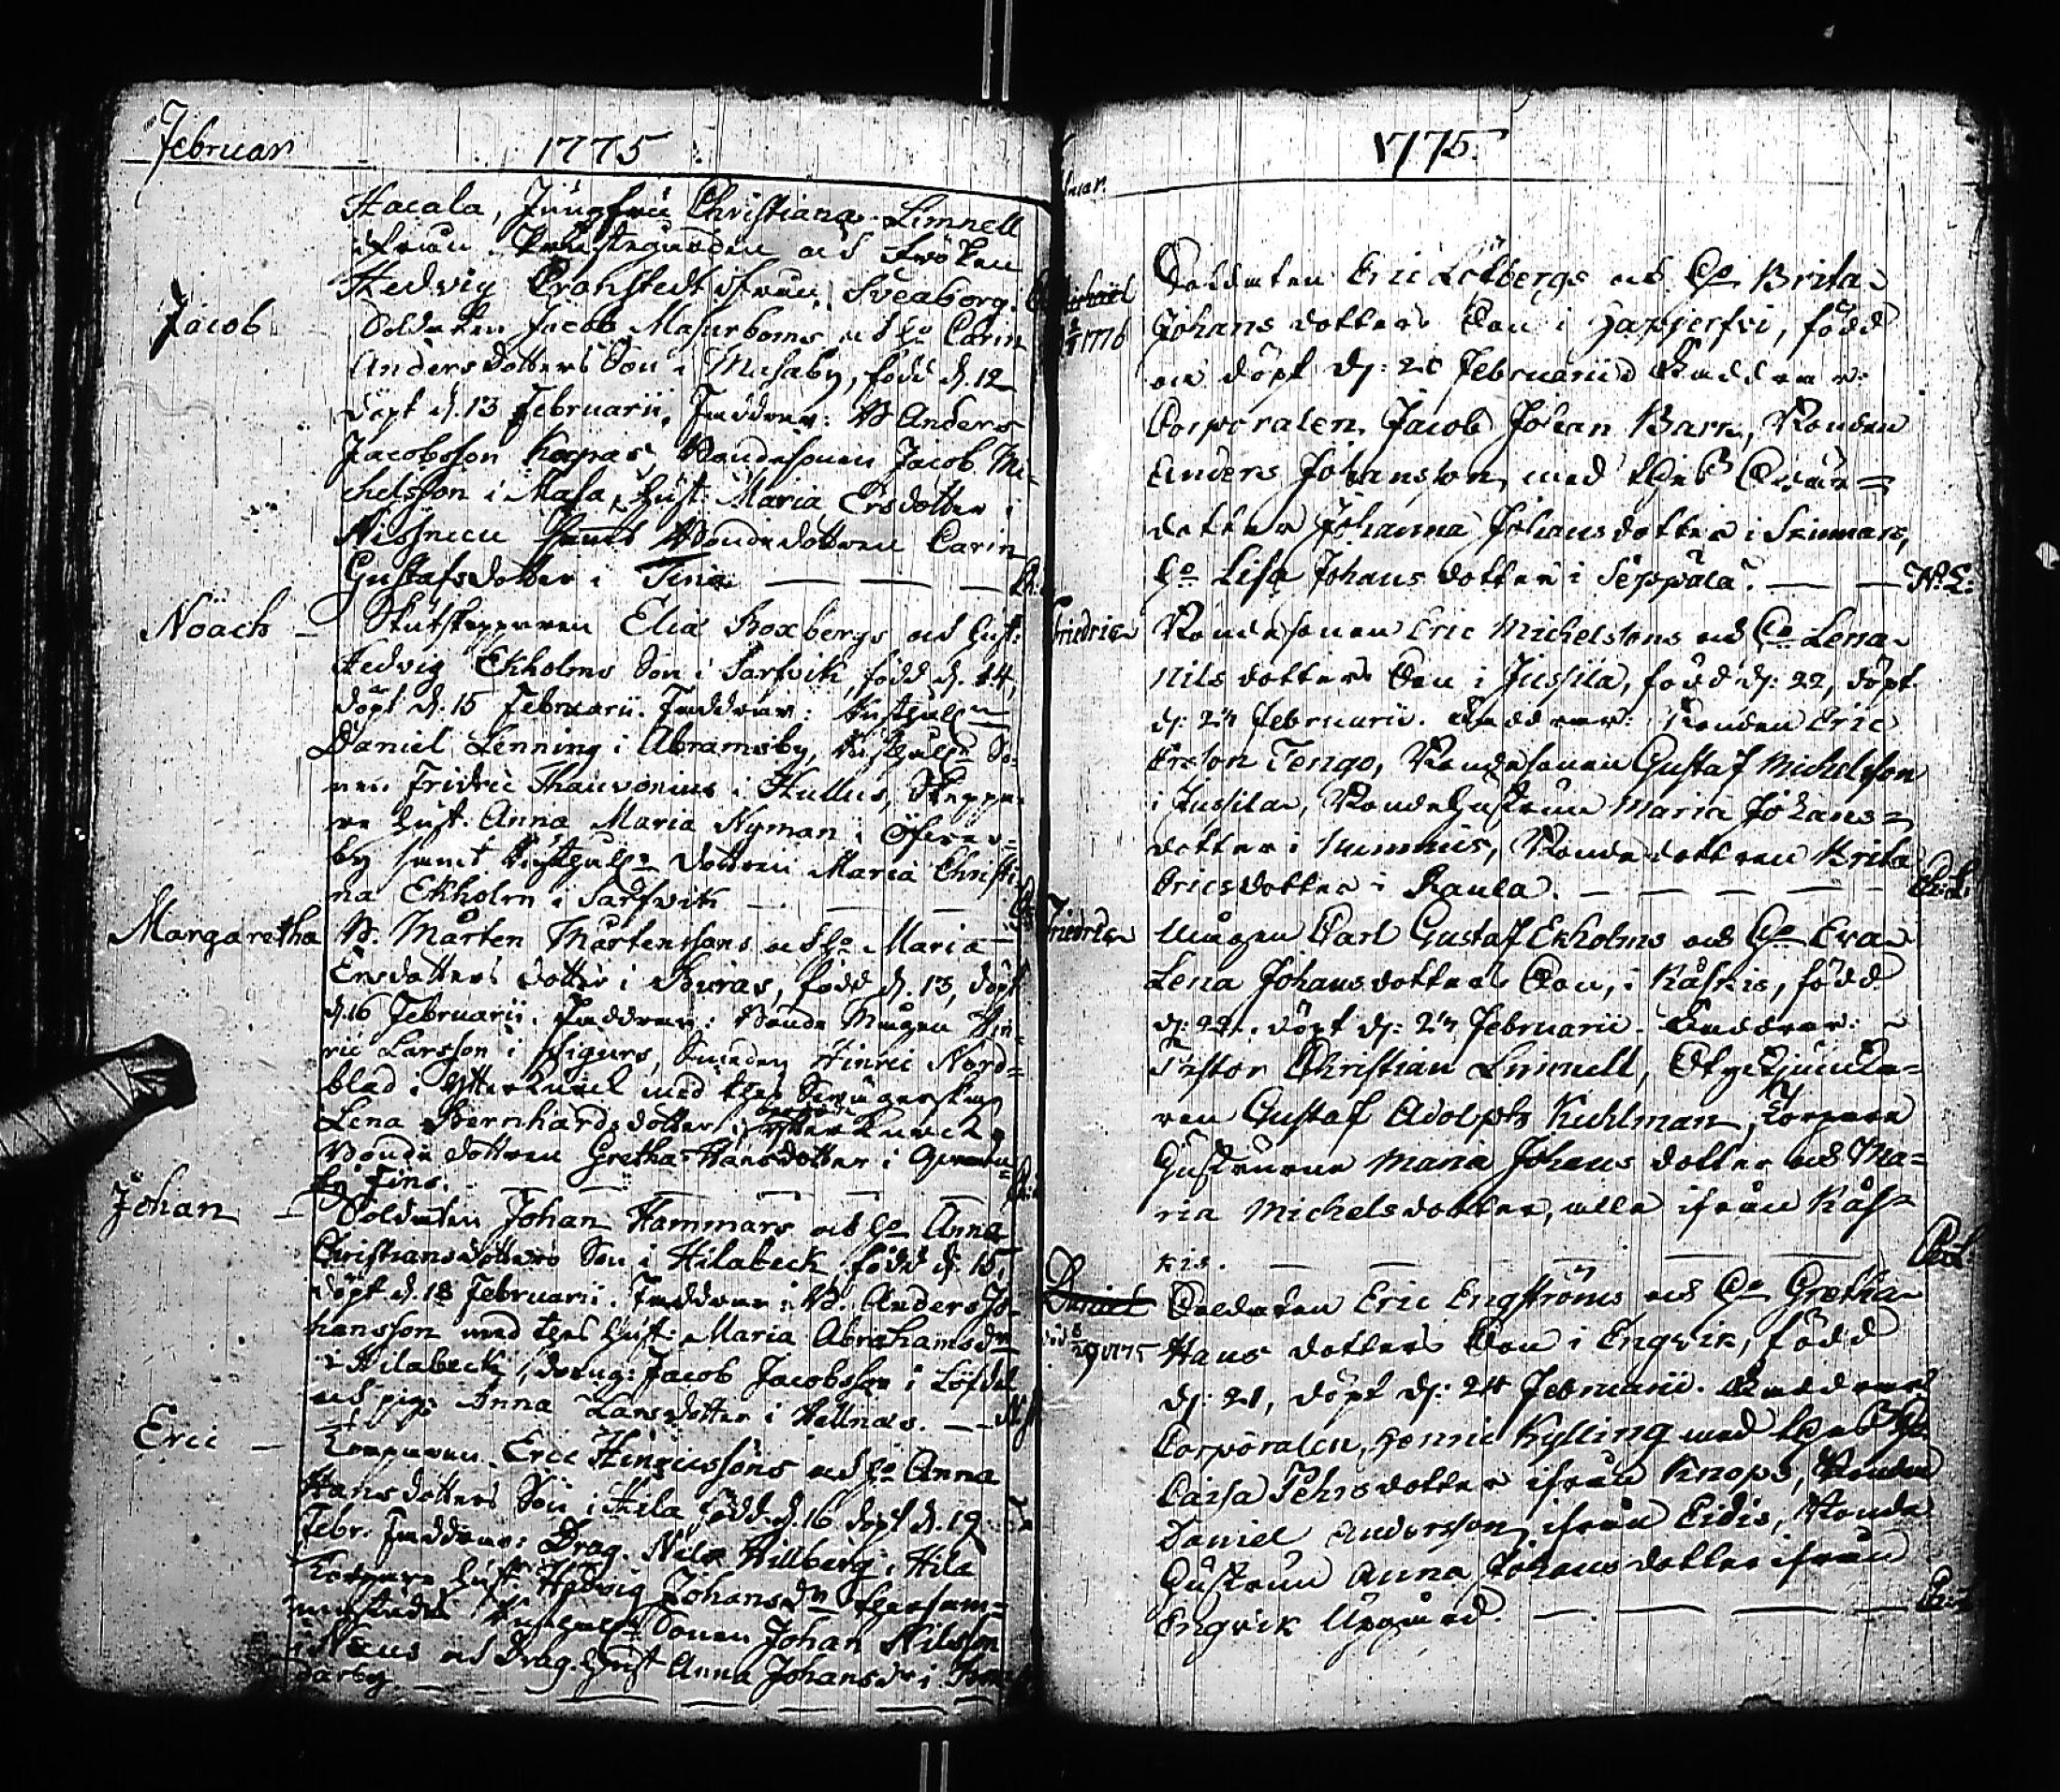 Februar 1775
Hacala, Jungfru Christiana Limnell
ifrån Prästegården och Fröken
Hedvig Cronstedt ifrån Sveaborg.
Jacob Soldaten Jacob Masurboms och H:o Carin
Anders dotters Son i Masaby, född d. 12
döpt d. 13 Februarii. Faddrar: B. Anders
Jacobsson Bondesonen Jacob Mi-
chelsson i Masa, Hust: Maria Ersdotter i
samt Bondedottren Carin
Gustafsdotter i
Noach Skutskepparen Elia Boxbergs och Hust:
Hedvig Ekholms Son i Sarfvik, född d. 14,
döpt d. 15 Februarii. Faddrar:
Daniel Lenning i Abramsby, So-
nen Fridric Thauvonius i Kullus, Skeppa-
re Hust. Anna Maria Nyman i Öfver-
by samt dottren Maria Christi-
na Ekholm i Sarfvik
Margaretha B. Mårten Mårtenssons och H:o Maria
Ersdotters dotter i Bouras, född d. 13, döpt
d. 16 Februarii. Faddrar: Bonde Mågen Hin-
ric Larsson i Smeden Hinric Nord-
blad i Ytterkurck med thes Svägerska
Lena Bernhardsdotter i Ytterkurck,
Bonde dottren Gretha Hansdotter i
by Fins.
Johan Soldaten Johan Hammars och H:o Anna
Christiansdotters Son i Hilabeck, född d. 15,
döpt d. 18 Februarii. Faddrar: B. Anders Jo-
hansson med thes Hust: Maria Abrahamsdr
i Hilabeck, dräng: Jacob Jacobsson i Löfdal
och pig: Anna Larsdotter i Hellnäs.
Eric Torparen Eric Hinricssons och H:o Anna
Hansdotters Son i Hila, född d. 16 döpt d. 19
Febr. Faddrar: Drag. Nils Hillberg i Hila
Torpare Hust: Hedvig Johansdr thersam-
mastädes Sonen Johan Nilsson
i Näus och Drag. Hust Anna Johansdr i
darby.
1775.
Soldaten Eric Lötbergs och H:o Brita
1776 Johans dotters Son i Haapjerfvi, född
och döpt d: 20 Februarii Faddrar:
Corporalen Jacob Johan Barn, Bonden
Anders Johansson med thes Sonu=
dotter Johanna Johansdotter i Skinnars,
H:o Lisa Johans dotter i Seppälä. N. L.
Friedric Bondesonen Eric Michelssons och H:o Lena
Nils dotters Son i Jussila, född d: 22, döpt
d: 24 Februarii. Faddrar: Bonden Eric
Ersson Tengo, Bondesonen Gustaf Michelsson
i Jussila, Bondehustrun Maria Johans=
dotter i Bondedottren Brita
Ericsdotter i Kaula.
Friedric Mågen Carl Gustaf Ekholms och H:o Eva
Lena Johansdotters Son, i Kåskis, född
d: 22. döpt d: 24 Februarii. Faddrar:
Pastor Christian Limnell,
ren Gustaf Adolph Kuhlman, Torpare
Hustrurne Maria Johans dotter och Ma=
ria Michelsdotter, alla ifrån Kås=
kis.
Daniel Soldaten Eric Engströms och H:o Gretha
1775 Hans dotters Son i Engvik, född
d: 21, döpt d: 24 Februarii. Faddrar:
Corporalen, Henric Kylling med thes H:o
Caisa Pehrsdotter ifrån Knops, Bonden
Daniel Andersson ifrån Eidis, Bonde
Hustrun Anna Johansdotter ifrån
Engvik Uppgård.